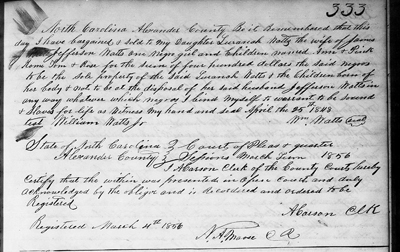 333
North Carolina Alexander County Be it Remembered that this
day I have bargained & sold to My Daughter Luranah Watts the wife of James
Jefferson Watts one Negro girl and Children named Ann &
Rome Tom & Rose for the Sum of four hundred dollars the said negros
to be the sole property of the said Luranah Watts & the Children born of
her body & not to be at the disposal of her said husband Jefferson Watts in
any way whatever which negros I bind Myself to warrant to be Sound
& Slaves for life as Witness My hand and seal April the 25th 1848
Test William Watts Jr Wm Watts Seal
State of North Carolina } Court of Pleas & quarter
Alexander County } Sessions March Term 1856
I A Carson Clerk of the County Court hereby
Certify that the within was presented in Open Court and duly
acknowledged by the obligor and is recorded and ordered to be
Registered
A Carson Clk
Registered March 4th 1856